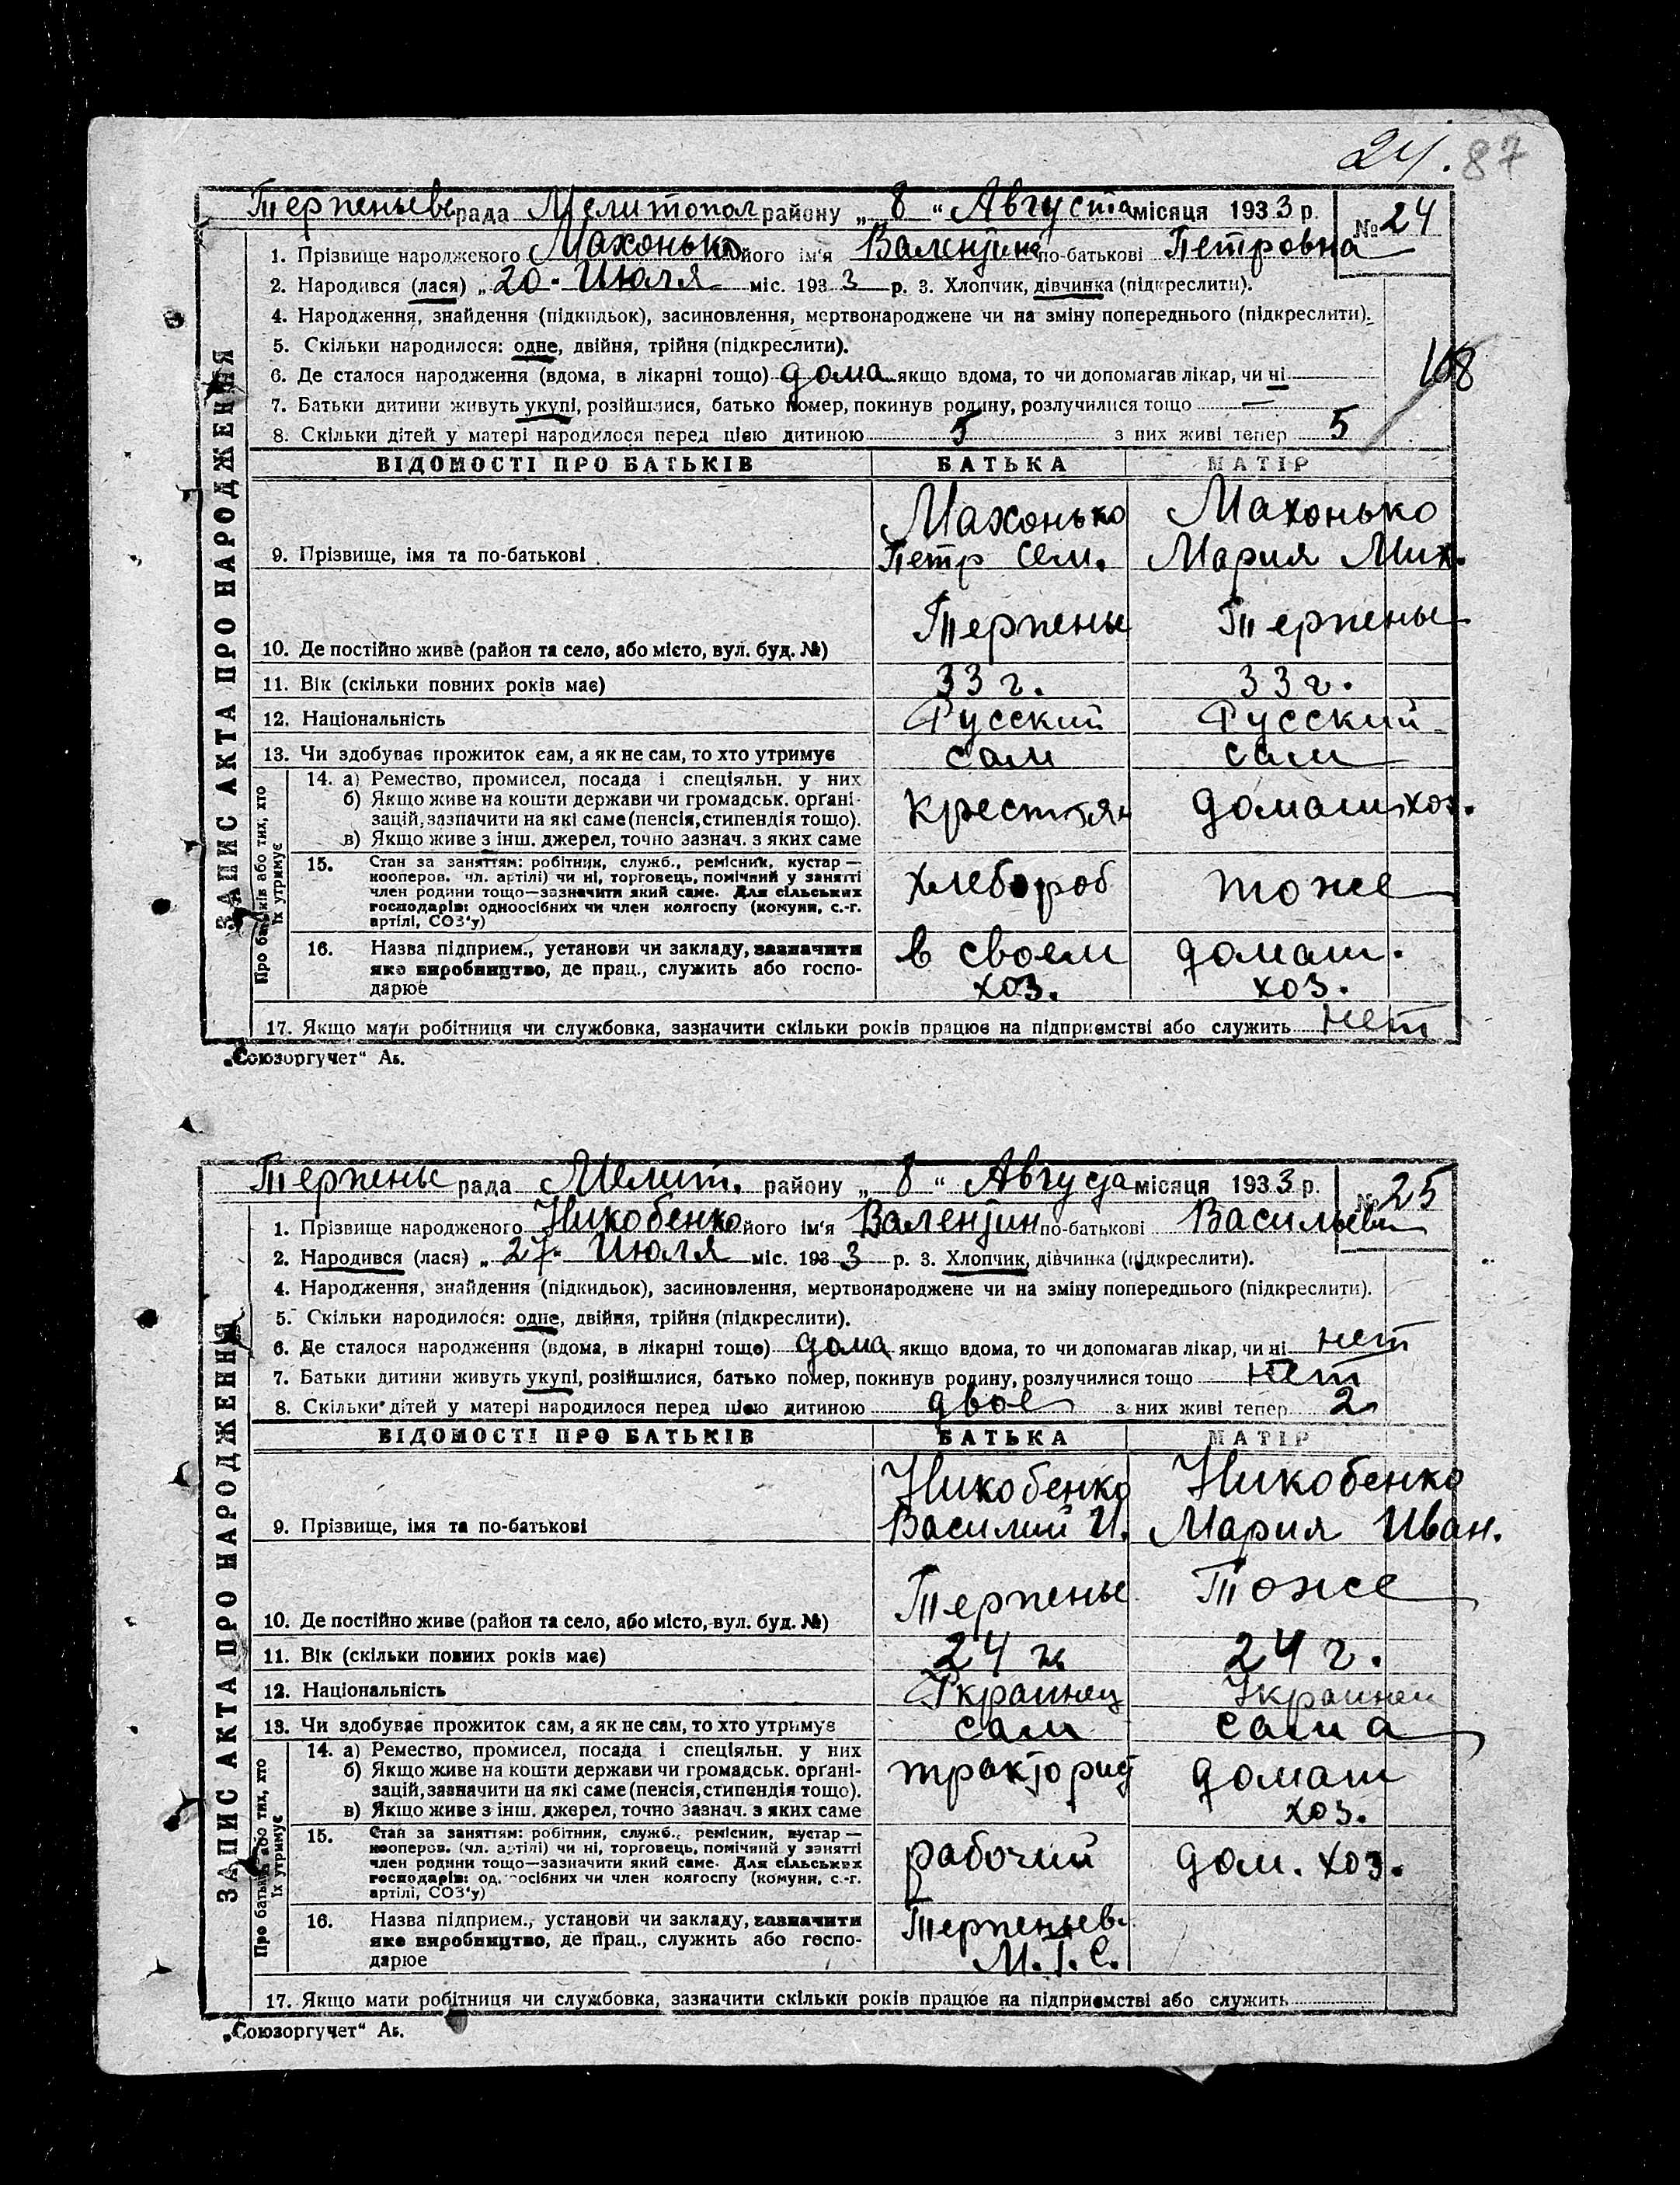 24. 87
Терпеньев рада Мелитопол району „ 8 “ Августа місяця 193 3 р. № 24
1. Прізвище народженого Махонько його ім'я Валентина по-батькові Петровна
2. Народився (лася) „ 20 - Июля міс. 193 3 р. 3. Хлопчик, дівчинка (підкреслити).
4. Народження, знайдення (підкидьок), засиновлення, мертвонароджене чи на зміну попереднього (підкреслити).
5. Скільки народилося: одне, двійня, трійня (підкреслити).
6. Де сталося народження (вдома, в лікарні тощо) дома якщо вдома, то чи допомагав лікар, чи ні
7. Батьки дитини живуть укупі, розійшлися, батько помер, покинув родину, розлучилися тощо —
8. Скільки дітей у матері народилося перед цією дитиною 5 з них живі тепер 5
ЗАПИС АКТА ПРО НАРОДЖЕННЯ
ВІДОМОСТІ ПРО БАТЬКІВ БАТЬКА МАТІР
Махонько Махонько
9. Прізвище, імя та по-батькові Петр Сем. Мария Мих.
10. Де постійно живе (район та село, або місто, вул. буд. №) Терпенье Терпенье
11. Вік (скільки повних років має) 33 г. 33 г.
12. Національність Русский Русский
13. Чи здобуває прожиток сам, а як не сам, то хто утримує сам сам
Про батьків або тих, хто їх утримує
14. а) Ремество, промисел, посада і спеціяльн. у них
б) Якщо живе на кошти держави чи громадськ. орґані- крестьян домаш хоз.
зацій, зазначити на які саме (пенсія, стипендія тощо).
в) Якщо живе з інш. джерел, точно зазнач. з яких саме
15. Стан за заняттям: робітник, служб., ремісник, кустар —
кооперов. чл. артілі) чи ні, торговець, помічний у занятті хлебороб тоже
член родини тощо—зазначити який саме. Для сільських
господарів: одноосібних чи член колгоспу (комуни, с.-г.
артілі, СОЗ'у)
16. Назва підприєм., установи чи закладу, зазначити в своем домаш.
яке виробництво, де прац., служить або госпо- хоз. хоз.
дарює
17. Якщо мати робітниця чи службовка, зазначити скільки років працює на підприємстві або служить нет
„Союзоргучет“ Аз.
Терпенье рада Мелит. району „ 8 “ Августа місяця 193 3 р. № 25
1. Прізвище народженого Никобенко його ім'я Валентин по-батькові Васильеви
2. Народився (лася) „ 27 - Июля міс. 193 3 р. 3. Хлопчик, дівчинка (підкреслити).
4. Народження, знайдення (підкидьок), засиновлення, мертвонароджене чи на зміну попереднього (підкреслити).
5. Скільки народилося: одне, двійня, трійня (підкреслити).
6. Де сталося народження (вдома, в лікарні тощо) дома якщо вдома, то чи допомагав лікар, чи ні нет
7. Батьки дитини живуть укупі, розійшлися, батько помер, покинув родину, розлучилися тощо нет
8. Скільки дітей у матері народилося перед цією дитиною двое з них живі тепер 2
ЗАПИС АКТА ПРО НАРОДЖЕННЯ
ВІДОМОСТІ ПРО БАТЬКІВ БАТЬКА МАТІР
Никобенко Никобенко
9. Прізвище, імя та по-батькові Василий И. Мария Иван.
10. Де постійно живе (район та село, або місто, вул. буд. №) Терпенье Тоже
11. Вік (скільки повних років має) 24 г. 24 г.
12. Національність Украинец Украинец
13. Чи здобуває прожиток сам, а як не сам, то хто утримує сам сама
Про батьків або тих, хто їх утримує
14. а) Ремество, промисел, посада і спеціяльн. у них
б) Якщо живе на кошти держави чи громадськ. орґані- тракторист домаш
зацій, зазначити на які саме (пенсія, стипендія тощо).
в) Якщо живе з інш. джерел, точно зазнач. з яких саме хоз.
15. Стан за заняттям: робітник, служб., ремісник, кустар —
кооперов. (чл. артілі) чи ні, торговець, помічний у занятті рабочий дом. хоз.
член родини тощо—зазначити який саме. Для сільських
господарів: одноосібних чи член колгоспу (комуни, с.-г.
артілі, СОЗ'у)
16. Назва підприєм., установи чи закладу, зазначити Терпеньев.
яке виробництво, де прац., служить або госпо- М.Т.С.
дарює
17. Якщо мати робітниця чи службовка, зазначити скільки років працює на підприємстві або служить
„Союзоргучет“ Аз.